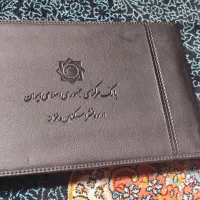 بانک مرکزی جمهوری اسلامی ایران
اداره نشر اسکناس و خزانه